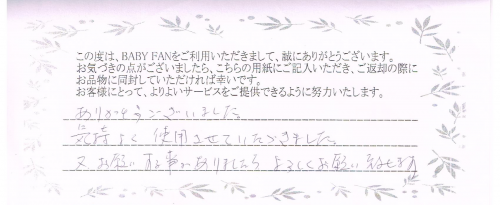 この度は、BABY FANをご利用いただきまして、誠にありがとうございます。
お気づきの点がございましたら、こちらの用紙にご記入いただき、ご返却の際に
お品物に同封していただければ幸いです。
お客様にとって、よりよいサービスをご提供できるように努力いたします。
ありがとうございました。
気持よく使用させていただきました。
又お願いする事がありましたらよろしくお願い致します